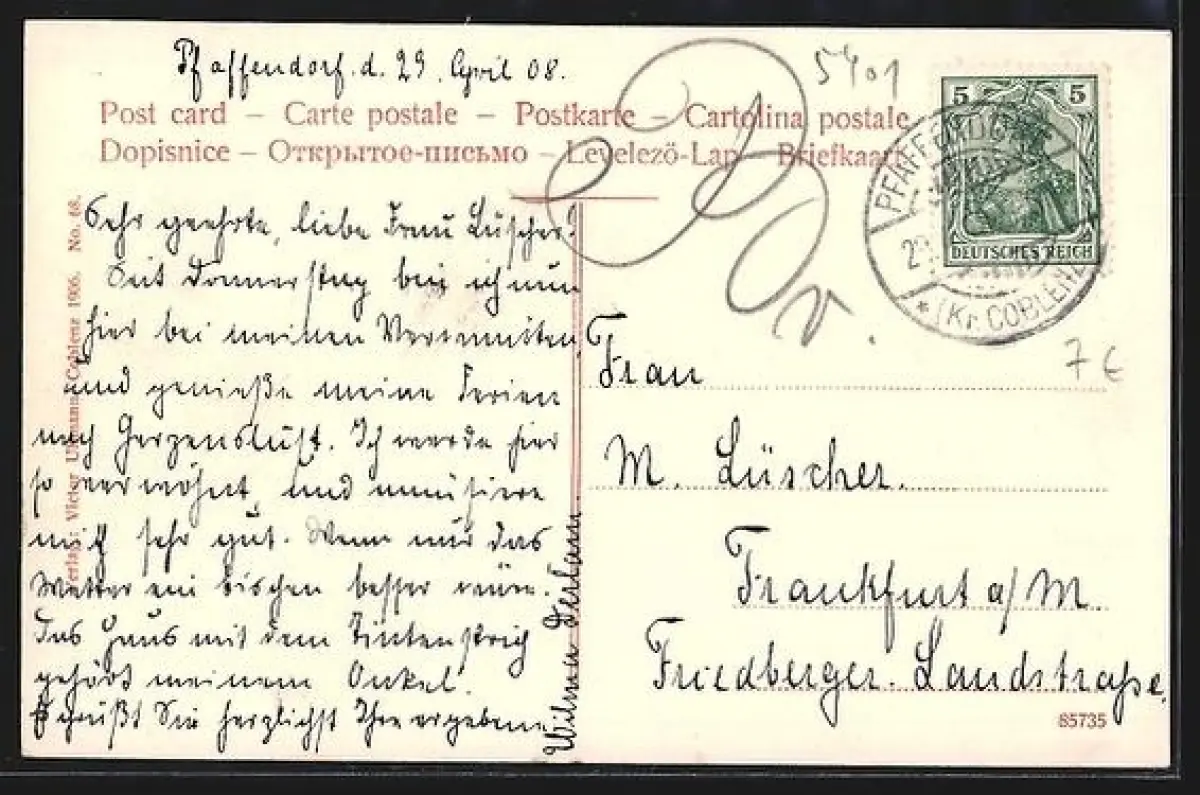 Pfaffendorf. d. 29. April 08.
5401
Post card – Carte postale – Postkarte – Cartolina postale
Dopisnice – Открытое-письмо – Levelezö-Lap – Briefkaart
5 5
DEUTSCHES REICH
PFAFFENDORF
* (Kr. COBLENZ)
7 €
Sehr geehrte, liebe Frau Lüscher!
Seit Donnerstag bin ich nun
hier bei meinen Verwandten,
und genieße meine Ferien
nach Herzenslust. Ich werde hier
so verwöhnt, und amüsiere
mich sehr gut. Wenn nur das
Wetter ein bischen besser wäre.
Das Haus mit dem Tintenstrich
gehört meinem Onkel.
Es grüßt Sie herzlichst Ihre ergebene
Frau
M. Lüscher.
Frankfurt a/M.
Friedberger. Landstraße.
Verlag: Victor Coblenz 1906. No. 68.
85735